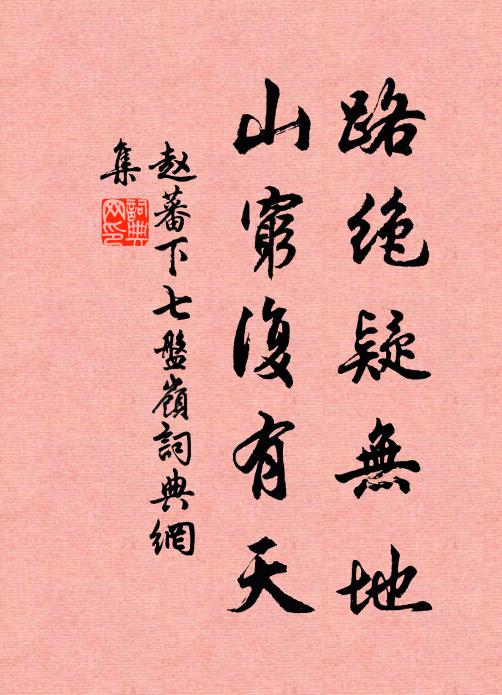 路绝疑無地
山窮復有天
赵蕃下七盤嶺詞典網
集
詞典
网印